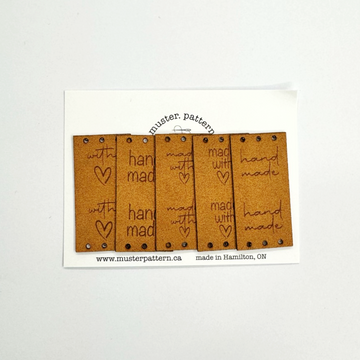 muster. pattern
with
hand
made
made
with
made
with
hand
made
with
hand
made
made
with
made
with
hand
made
www.musterpattern.ca made in Hamilton, ON